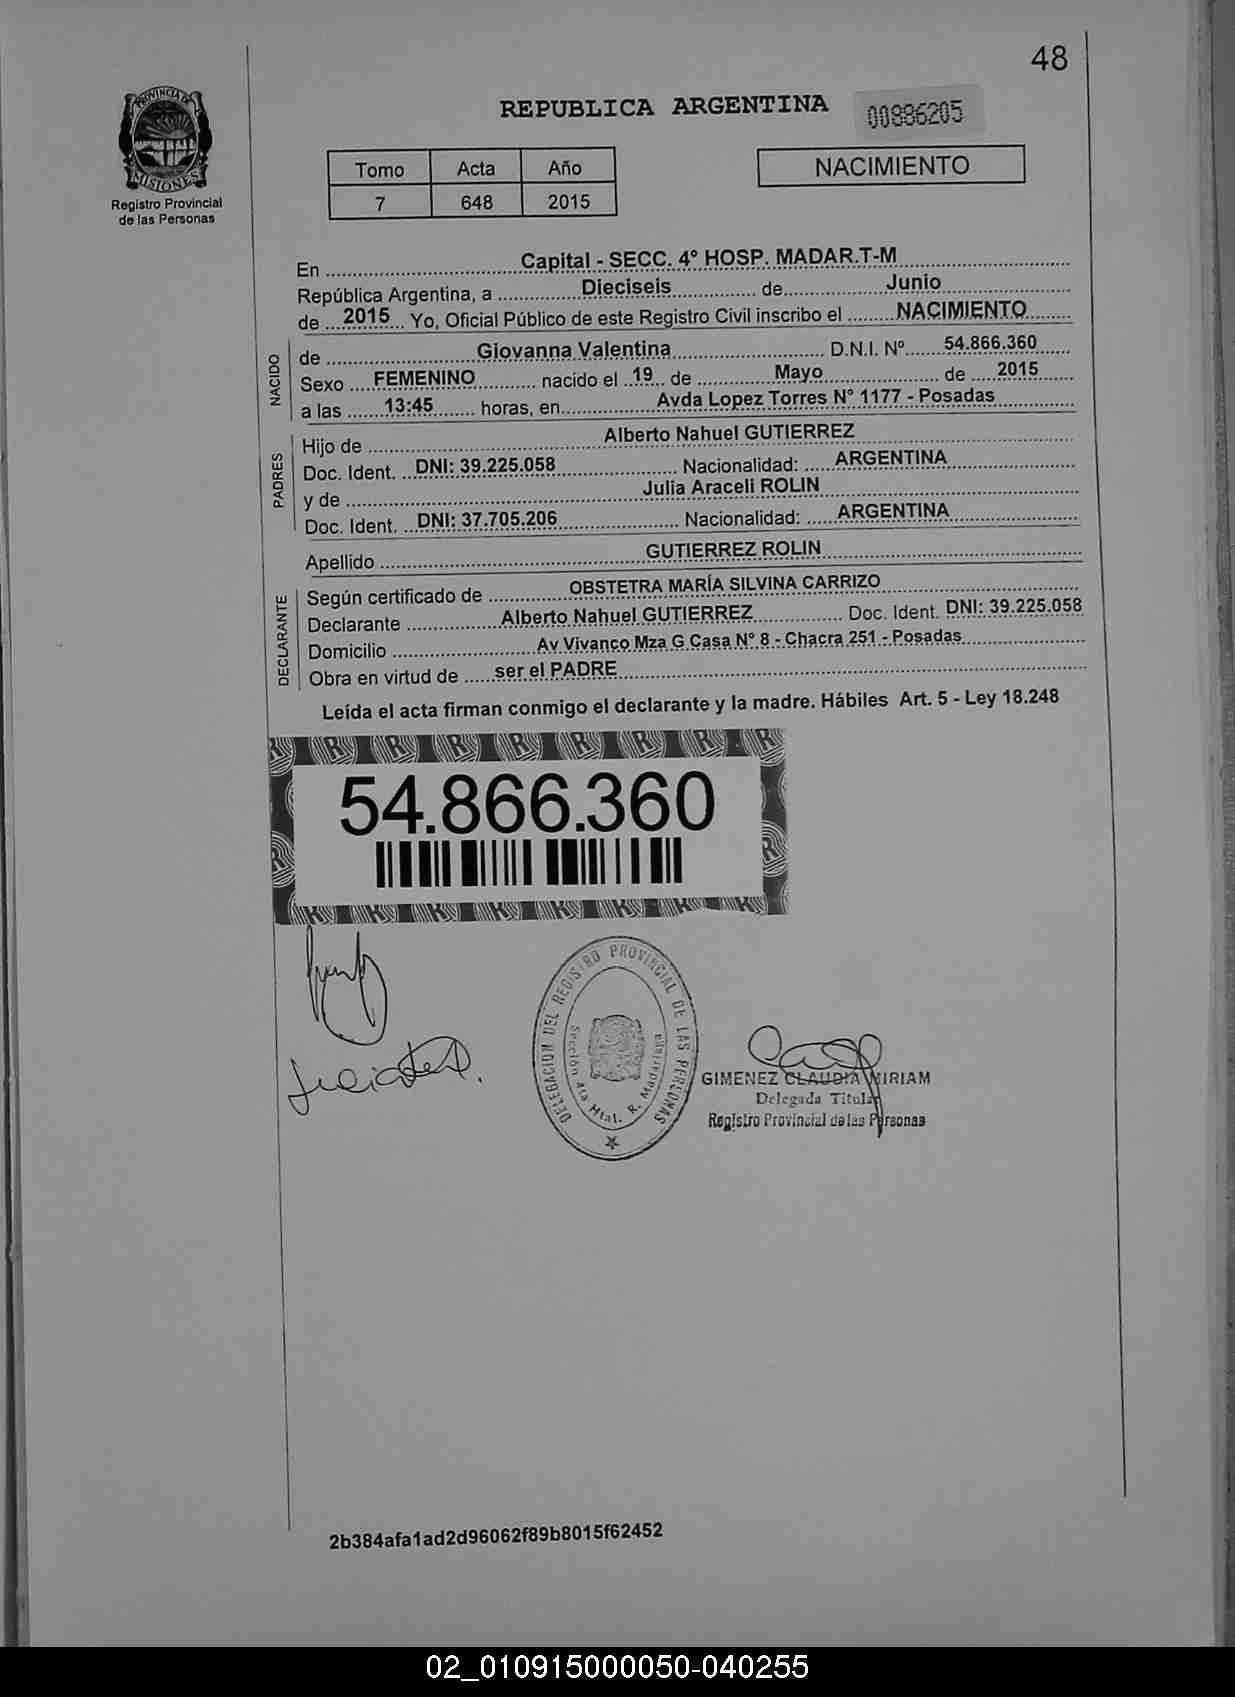 48
PROVINCIA DE
MISIONES
Registro Provincial
de las Personas
REPUBLICA ARGENTINA
00886205
Tomo Acta Año
7 648 2015
NACIMIENTO
En Capital - SECC. 4° HOSP. MADAR.T-M
República Argentina, a Dieciseis de Junio
de 2015 Yo, Oficial Público de este Registro Civil inscribo el NACIMIENTO
NACIDO
de Giovanna Valentina D.N.I. Nº 54.866.360
Sexo FEMENINO nacido el 19 de Mayo de 2015
a las 13:45 horas, en Avda Lopez Torres N° 1177 - Posadas
PADRES
Hijo de Alberto Nahuel GUTIERREZ
Doc. Ident. DNI: 39.225.058 Nacionalidad: ARGENTINA
y de Julia Araceli ROLIN
Doc. Ident. DNI: 37.705.206 Nacionalidad: ARGENTINA
Apellido GUTIERREZ ROLIN
DECLARANTE
Según certificado de OBSTETRA MARÍA SILVINA CARRIZO
Declarante Alberto Nahuel GUTIERREZ Doc. Ident. DNI: 39.225.058
Domicilio Av Vivanco Mza G Casa N° 8 - Chacra 251 - Posadas
Obra en virtud de ser el PADRE
Leída el acta firman conmigo el declarante y la madre. Hábiles Art. 5 - Ley 18.248
54.866.360
DELEGACION DEL REGISTRO PROVINCIAL DE LAS PERSONAS
Sección 4ta Htal. R. Madariaga
GIMENEZ CLAUDIA MIRIAM
Delegada Titular
Registro Provincial de las Personas
2b384afa1ad2d96062f89b8015f62452
02_010915000050-040255